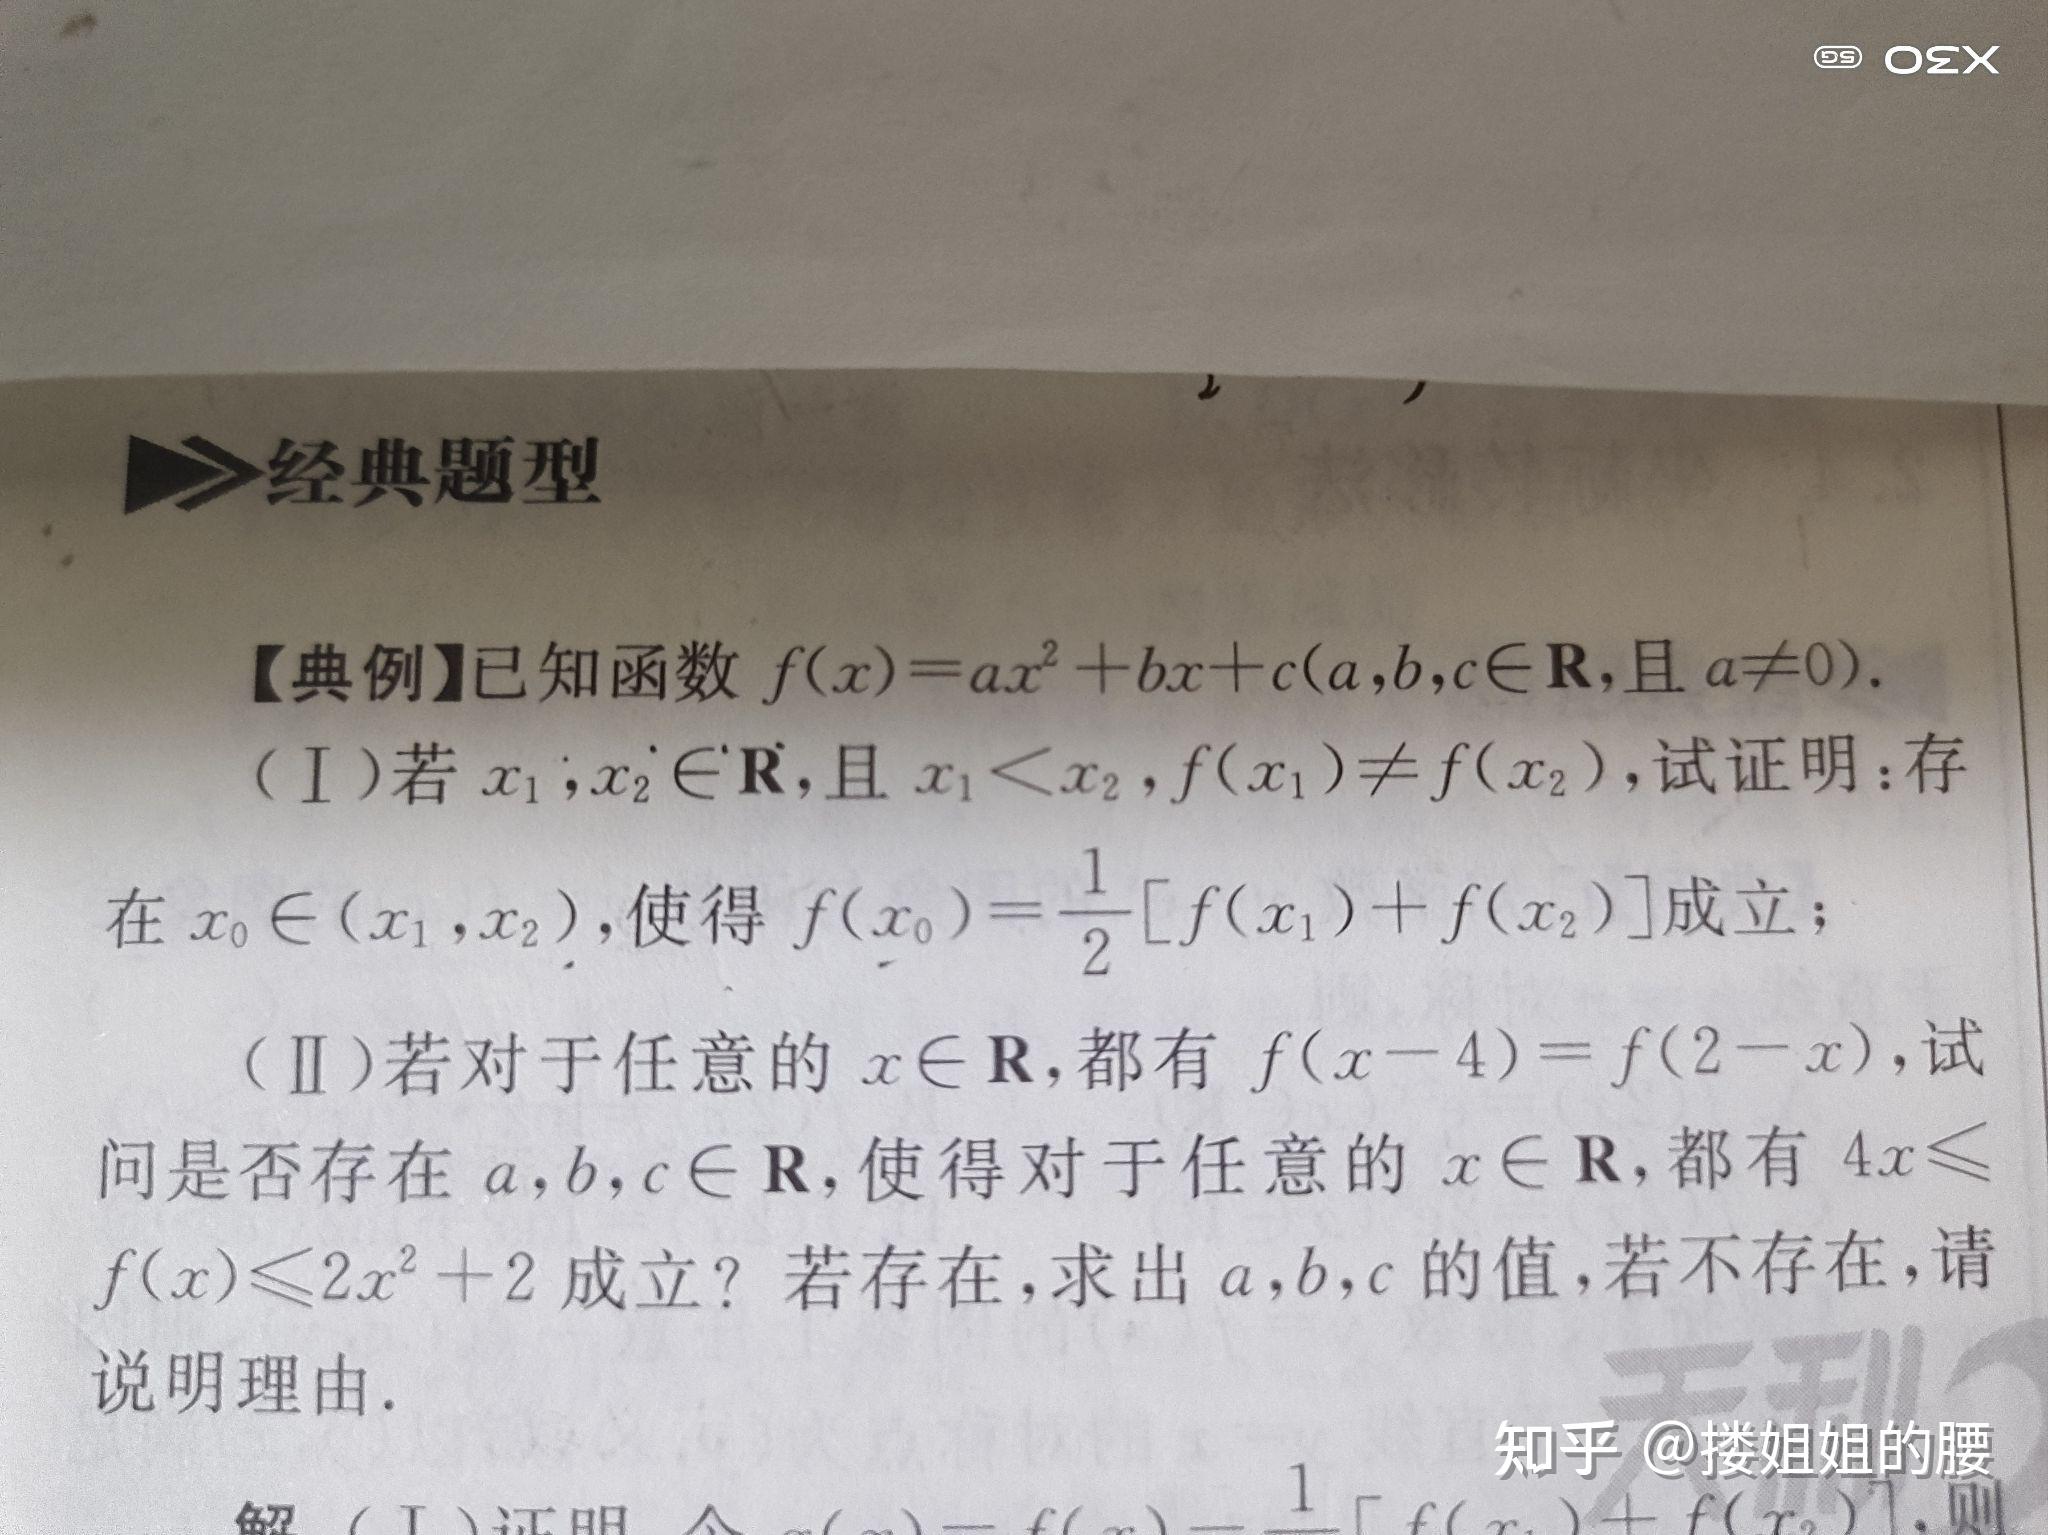 X30 5G
经典题型
【典例】已知函数 f(x)=ax²+bx+c(a,b,c∈R,且 a≠0).
(Ⅰ)若 x₁,x₂∈R,且 x₁<x₂,f(x₁)≠f(x₂),试证明:存
在 x₀∈(x₁,x₂),使得 f(x₀)=1/2[f(x₁)+f(x₂)]成立;
(Ⅱ)若对于任意的 x∈R,都有 f(x-4)=f(2-x),试
问是否存在 a,b,c∈R,使得对于任意的 x∈R,都有 4x≤
f(x)≤2x²+2 成立? 若存在,求出 a,b,c 的值,若不存在,请
说明理由.
天利
知乎 @搂姐姐的腰
解 (Ⅰ)证明 令 g(x)=f(x)-1/2[f(x₁)+f(x₂)],则